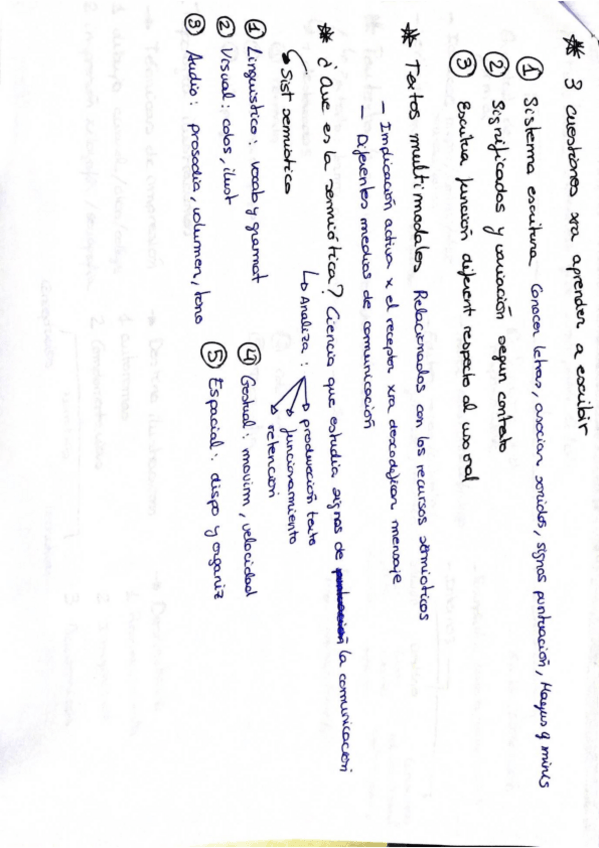 * 3 cuestiones xra aprender a escribir
① Sistema escritura Conocer letras, asocian sonidos, signos puntuación, Mayus y minus
② Significados y variación segun contexto
③ Escritura función diferent respecto al uso oral
* Textos multimodales Relacionados con los recursos semioticos
- Implicación activa x el receptor xra descodifican mensaje
- Diferentes medios de comunicación
* ¿Que es la semiótica? Ciencia que estudia signos de puntuación la comunicación
↳ Analiza : → producción texto
→ funcionamiento
→ retencion
• Sist semiotico
① Linguistico : vocab y gramat
② Visual : colos, ilust
③ Audio : prosodia, volumen, tono
④ Gestual : movim, velocidad
⑤ Espacial : dispo y organiz